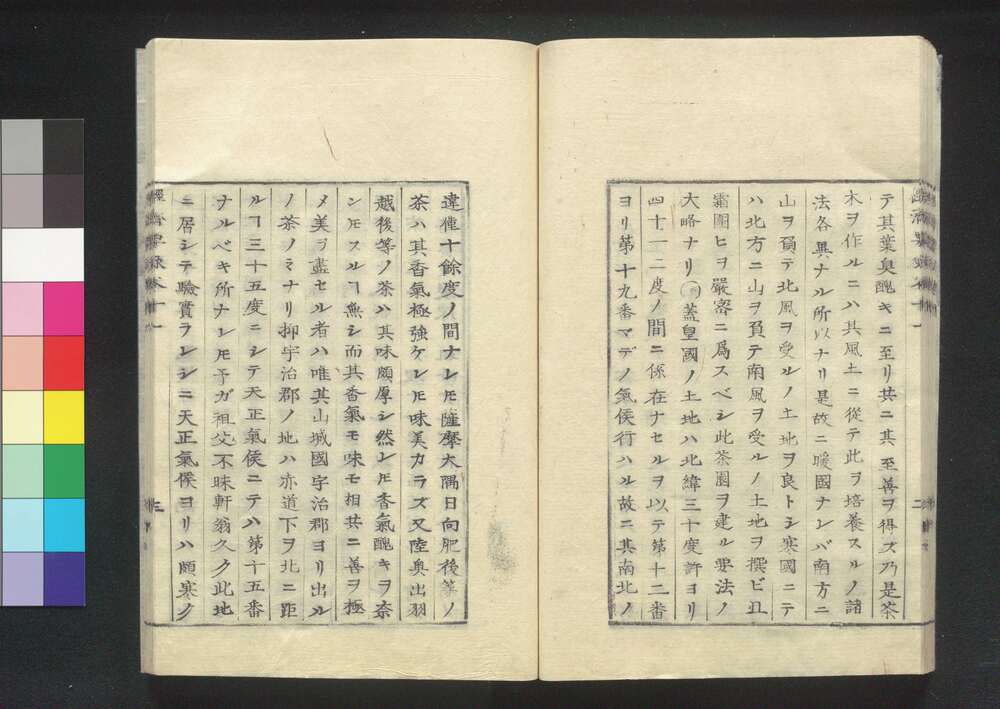 テ其葉臭醜キニ至リ共ニ其至善ヲ得ズ乃是茶
木ヲ作ルニハ其風土ニ從テ此ヲ培養スルノ諸
法各異ナル所以ナリ是故ニ暖國ナレバ南方ニ
山ヲ負テ北風ヲ受ルノ土地ヲ良トシ寒國ニテ
ハ北方ニ山ヲ負テ南風ヲ受ルノ土地ヲ撰ビ且
霜圍ヒヲ嚴密ニ爲スベシ此茶園ヲ建ル要法ノ
大略ナリ 蓋皇國ノ土地ハ北緯三十度許ヨリ
四十一二度ノ間ニ係在ナセルヲ以テ第十二番
ヨリ第十九番マデノ氣侯行ハル故ニ其南北ノ
二
違僅十餘度ノ間ナレ𪜈薩摩大隅日向肥後等ノ
茶ハ其香氣極強ケレ𪜈味美カラズ又陸奥出羽
越後等ノ茶ハ其味頗厚シ然レ𪜈香氣醜キヲ奈
ン𪜈スルヿ無シ而其香氣モ味モ相共ニ善ヲ極
メ美ヲ盡セル者ハ唯其山城國宇治郡ヨリ出ル
ノ茶ノミナリ抑宇治郡ノ地ハ赤道下ヲ北ニ距
ルヿ三十五度ニシテ天正氣侯ニテハ第十五番
ナルベキ所ナレ𪜈予ガ祖父不昧軒翁久ク此地
ニ居シテ驗實ラレシニ天正氣侯ヨリハ頗寒ク
三